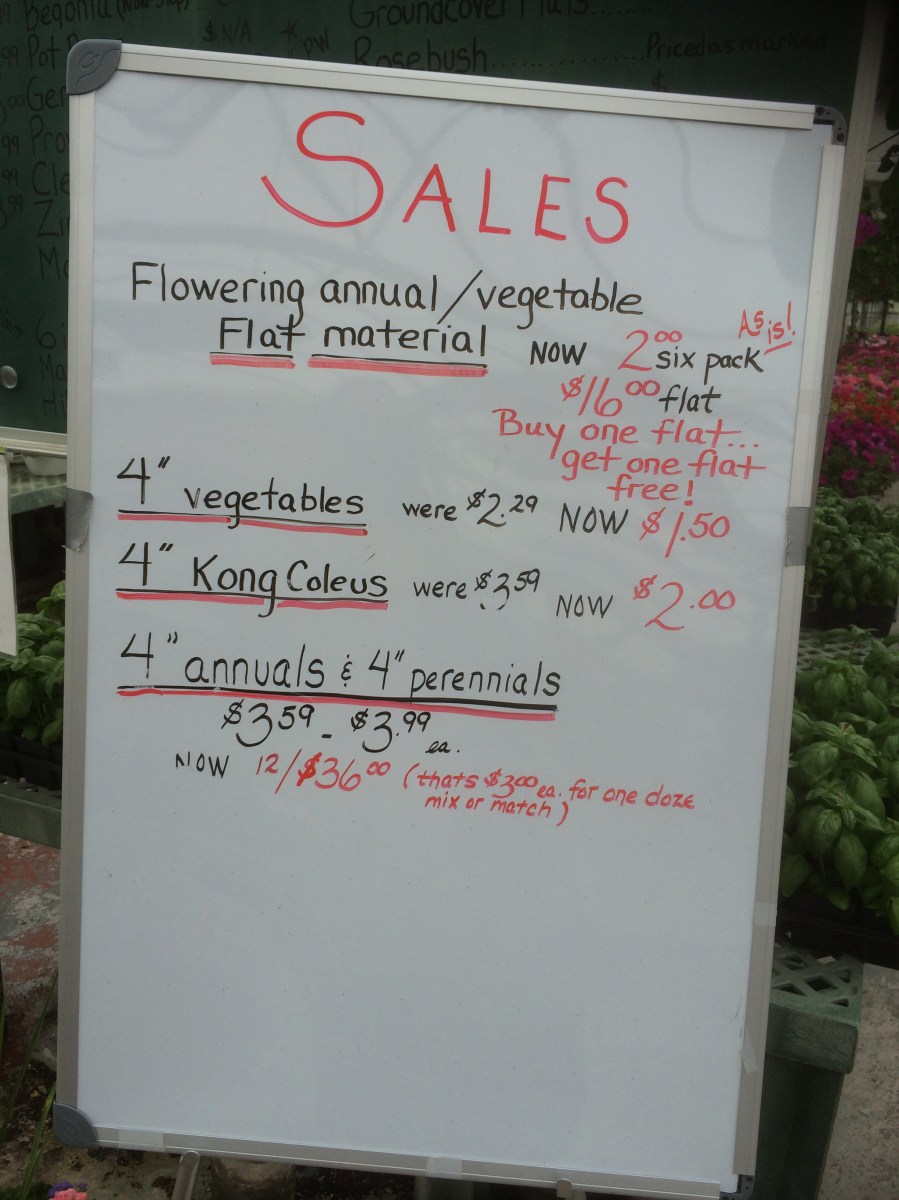 Begonia
Groundcover Flats......
Pot
$N/A
* PW
Rosebush................ Priced as marked
SALES
Flowering annual/vegetable
Flat material NOW 2.00 six pack As is!
$16.00 flat
Buy one flat...
get one flat
free!
4" vegetables were $2.29 NOW $1.50
4" Kong Coleus were $3.59 NOW $2.00
4" annuals & 4" perennials
$3.59 - $3.99 ea.
NOW 12/$36.00 (thats $3.00 ea. for one doze
mix or match)